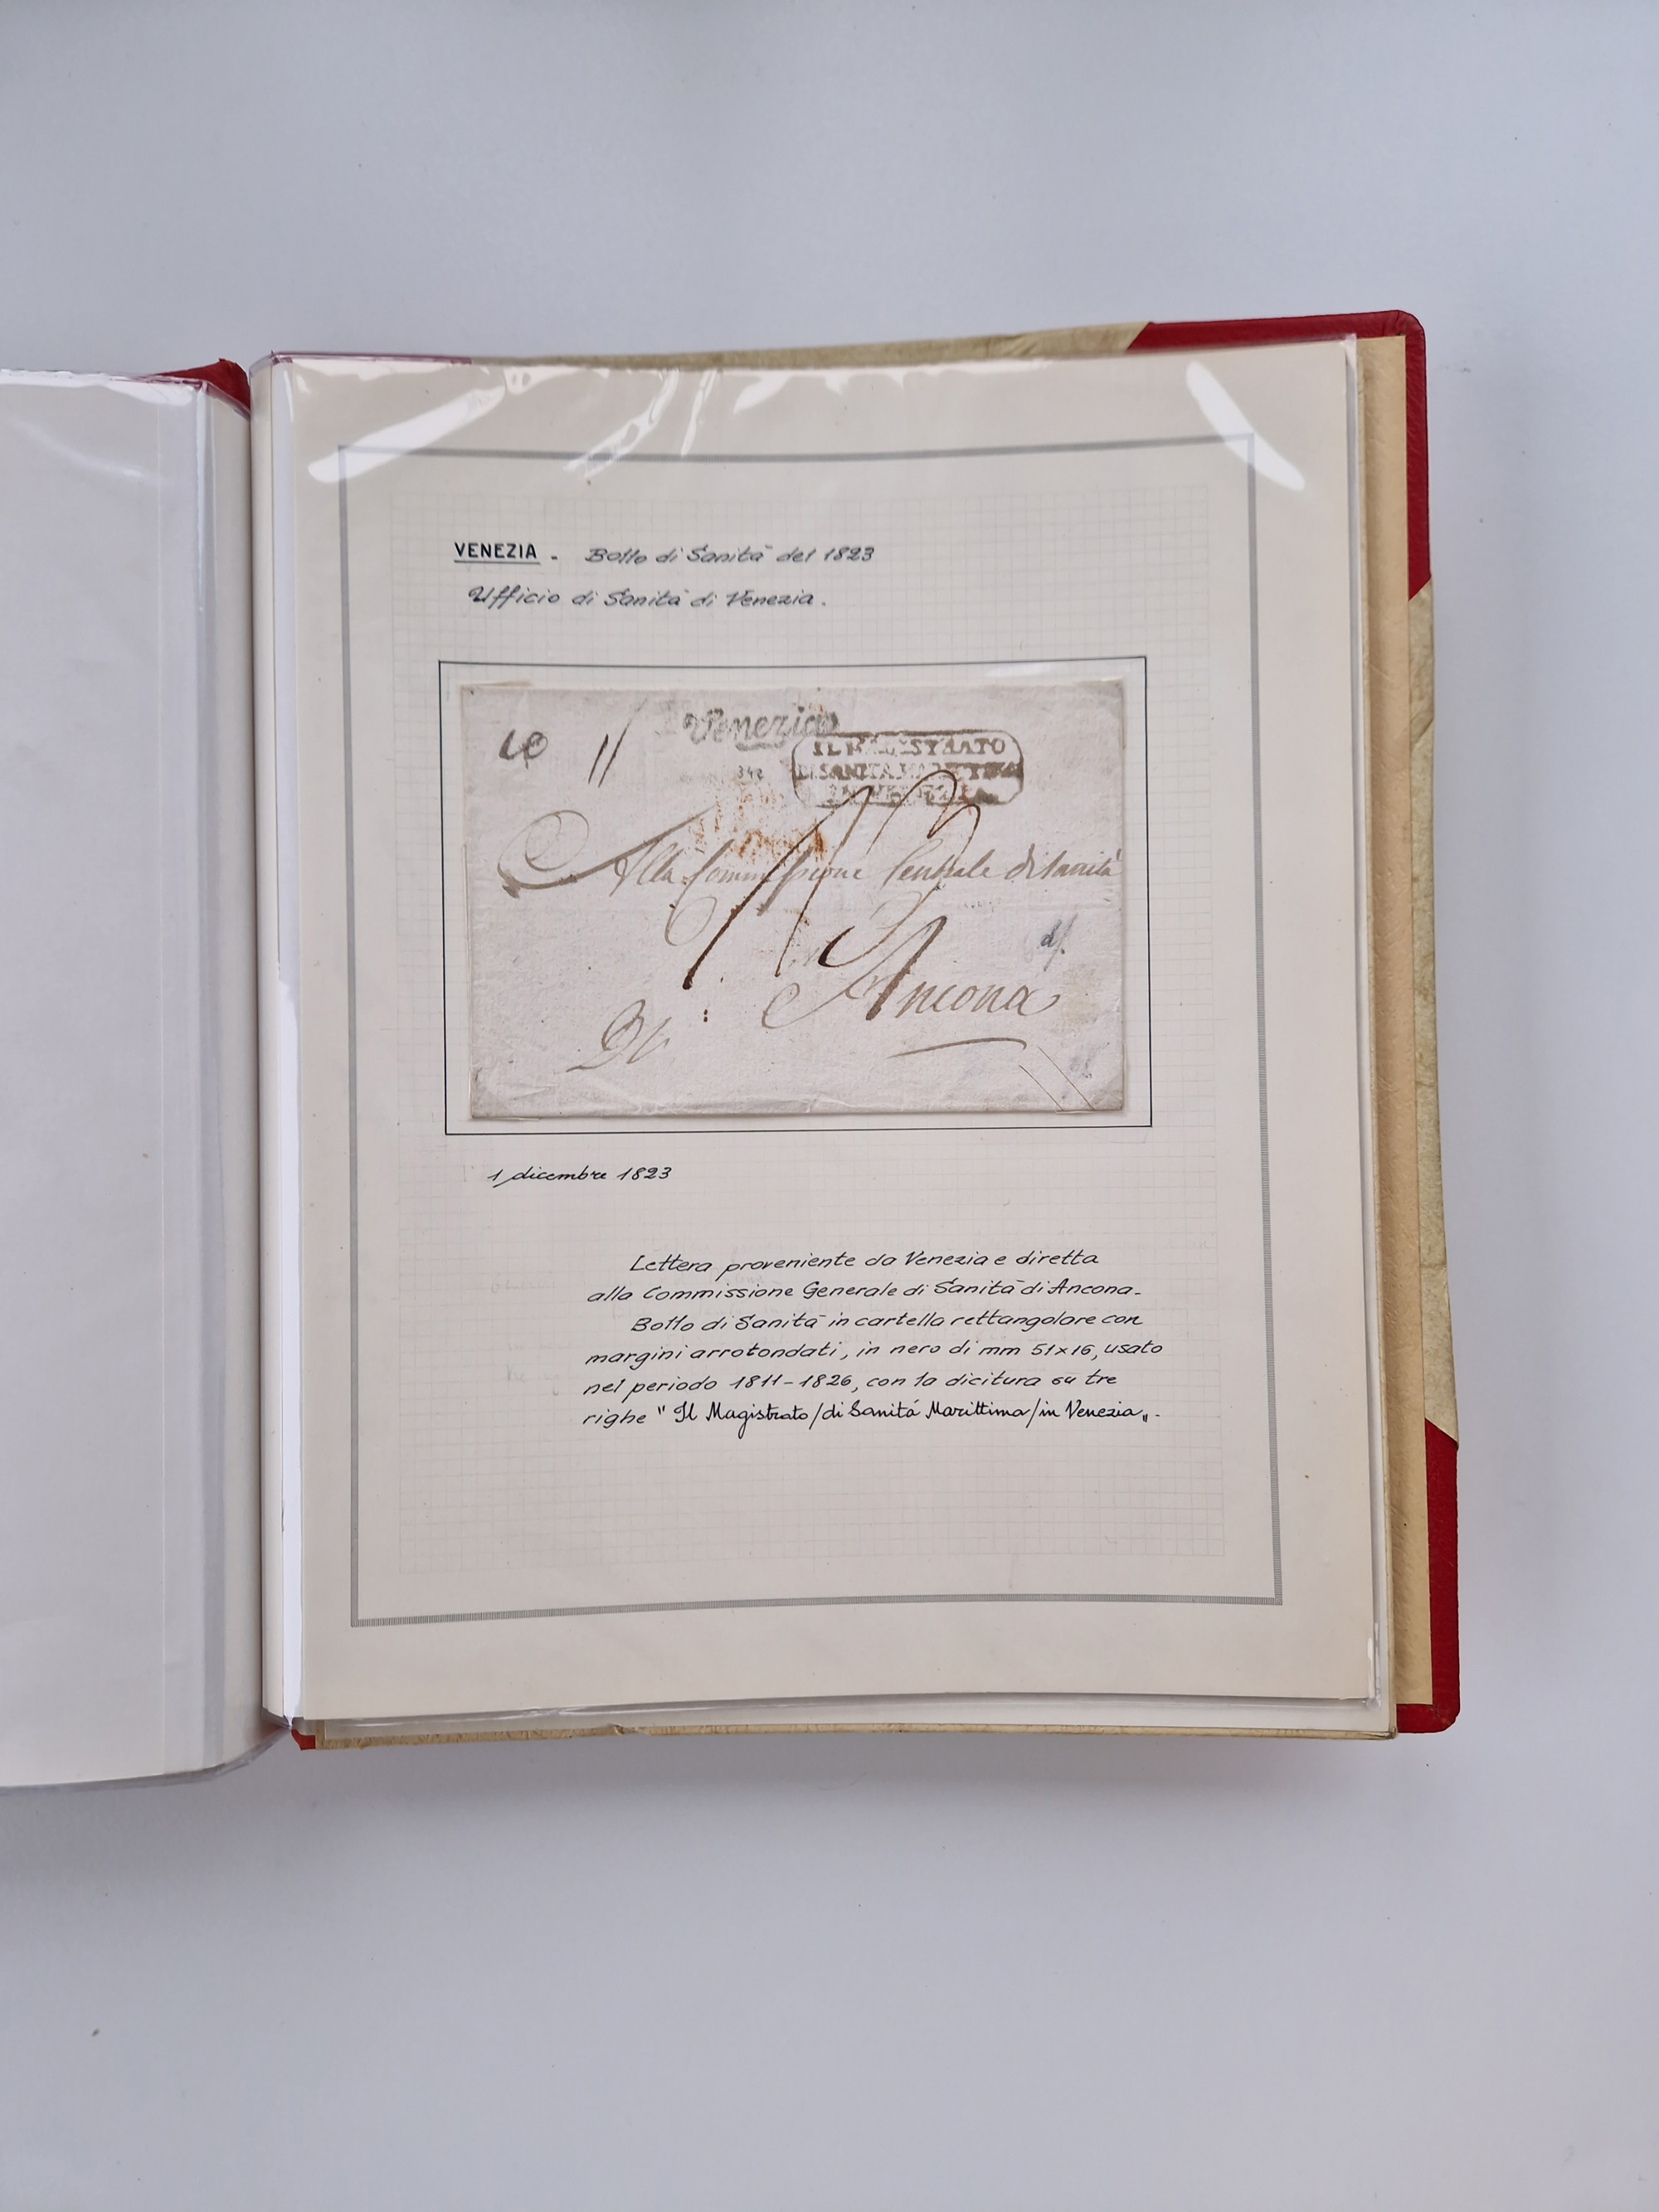 VENEZIA - Bollo di Sanità del 1823
Ufficio di Sanità di Venezia.
Venezia
IL MAGISTRATO
DI SANITA MARITTIMA
IN VENEZIA
342
Alla Commissione Centrale di Sanità
Ancona
1 dicembre 1823
Lettera proveniente da Venezia e diretta
alla Commissione Generale di Sanità di Ancona-
Bollo di Sanità in cartella rettangolare con
margini arrotondati, in nero di mm 51x16, usato
nel periodo 1811-1826, con la dicitura su tre
righe "Il Magistrato/di Sanitá Marittima/in Venezia".-